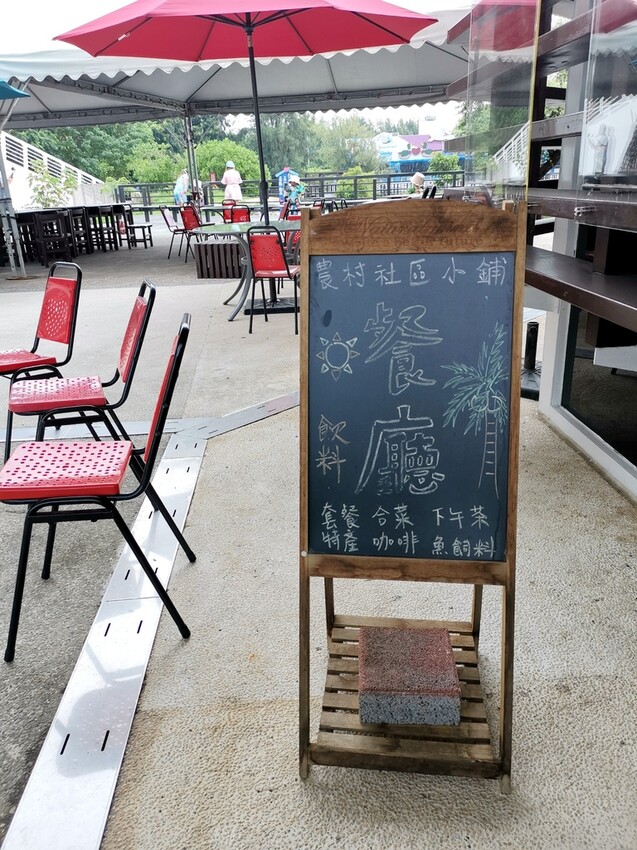 農村社區小鋪
餐廳
飲料
套餐 合菜 下午茶
特產 咖啡 魚飼料